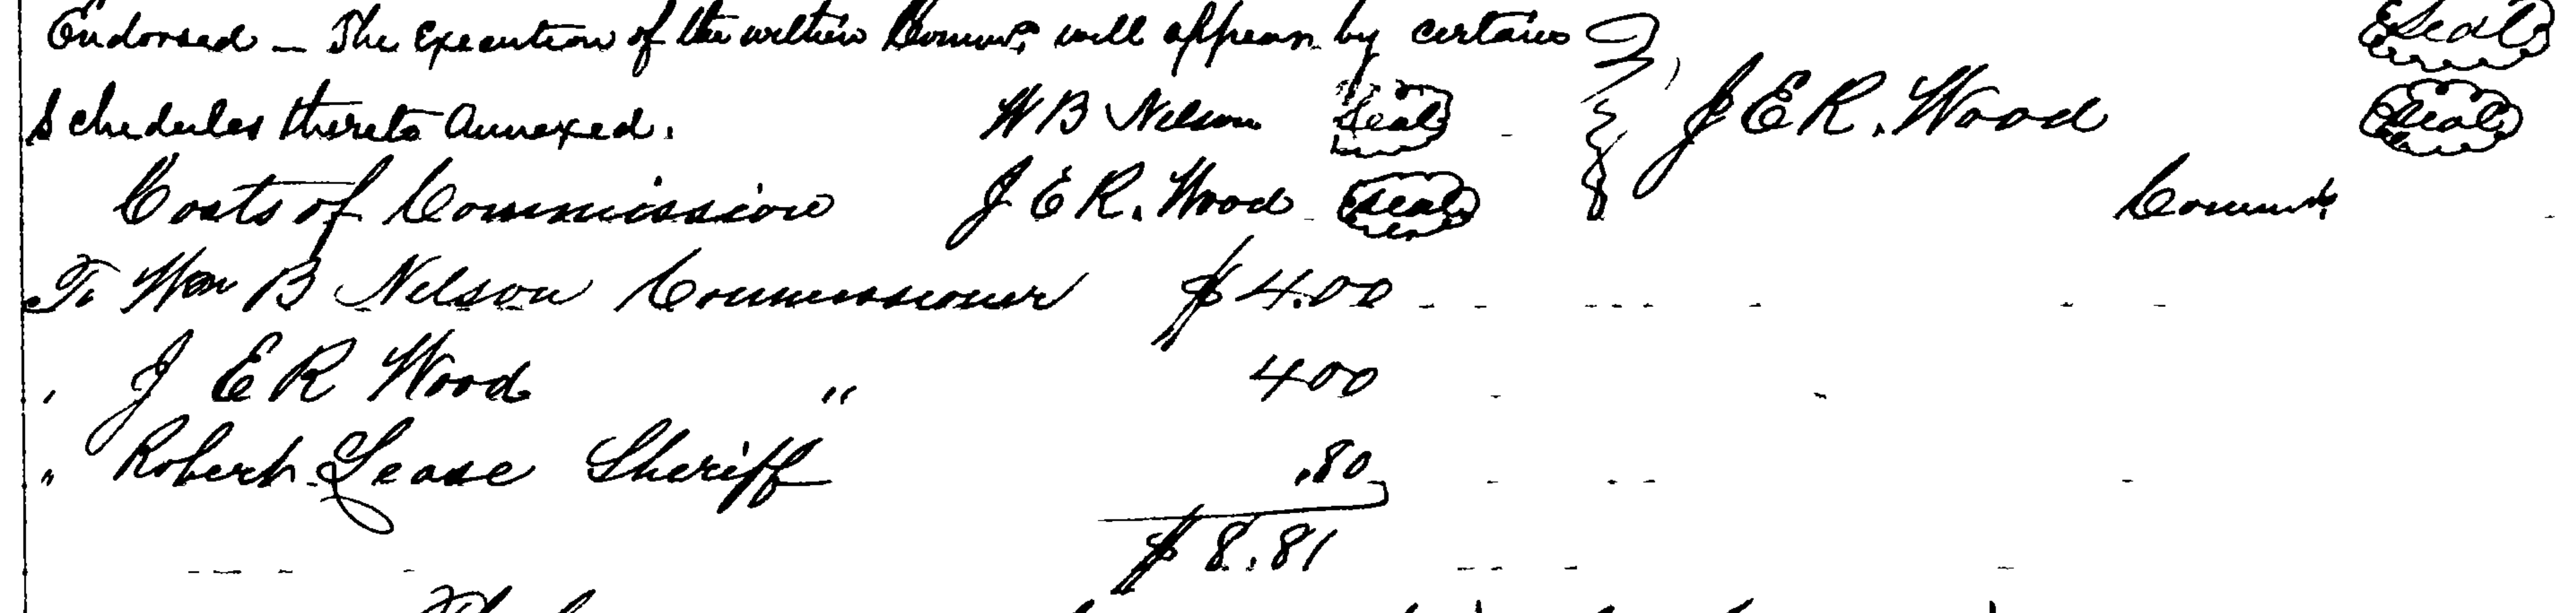 Endorsed – The execution of the within Commn. will appear by certain Seal
Schedules thereto Annexed. W B Nelson Seal J E R. Wood Seal
Costs of Commission J E R. Wood Seal Commrs.
To Wm B Nelson Commissioner $4.00
" J E R Wood " 400
" Robert Lease Sheriff .80
$8.81